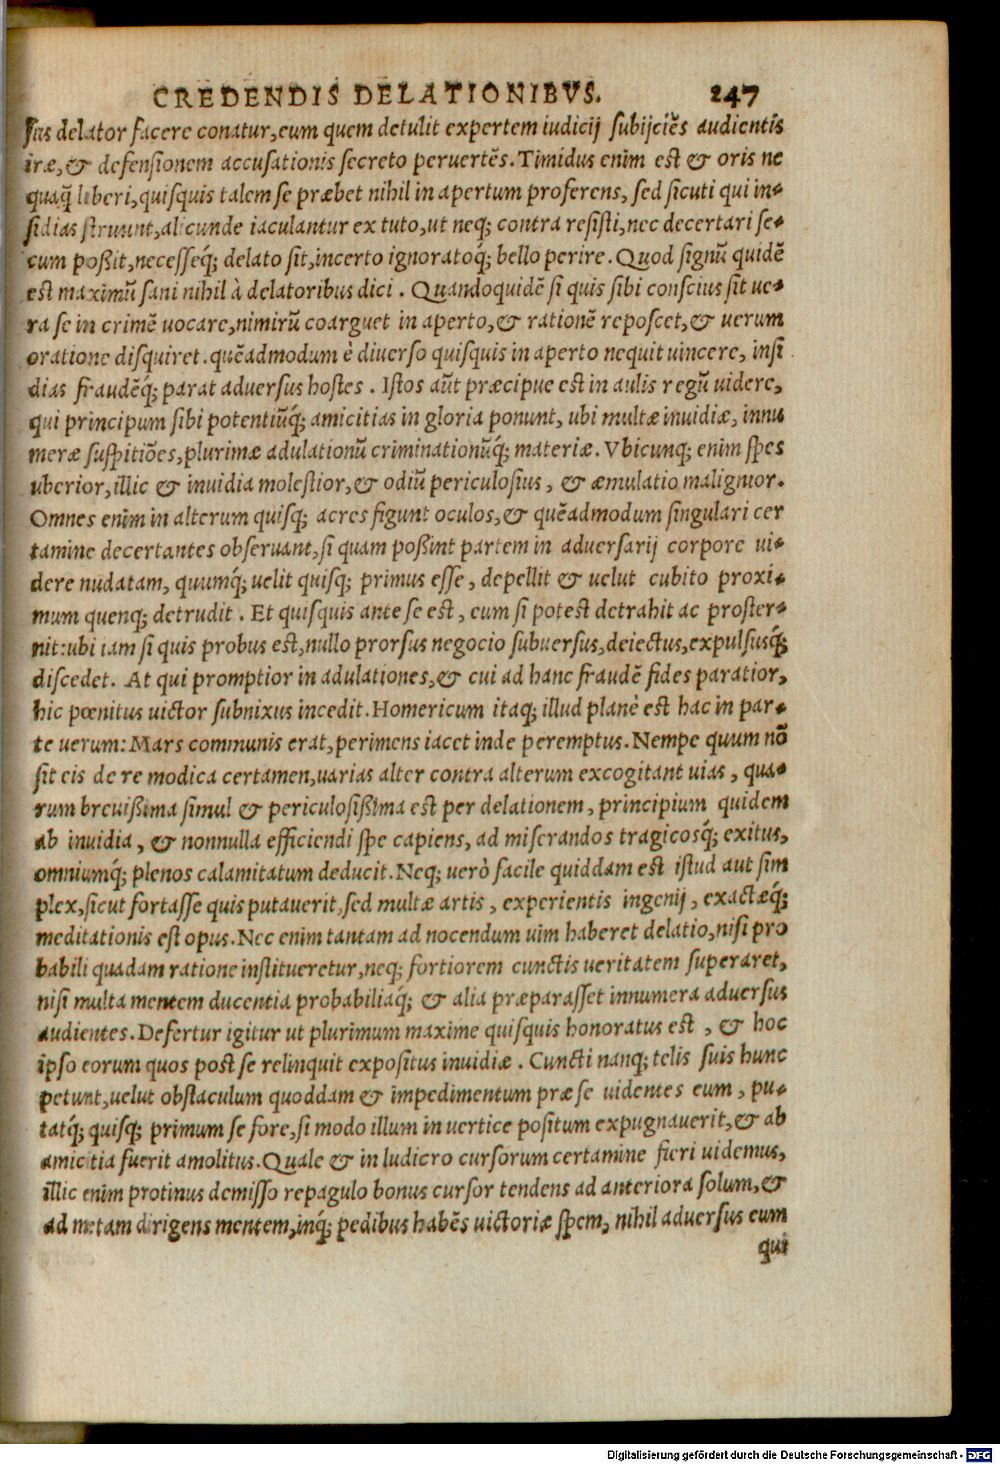 CREDENDIS DELATIONIBVS. 247
ſas delator facere conatur, eum quem detulit expertem iudicij ſubijciẽs audientis
iræ, & defenſionem accuſationis ſecreto peruertẽs. Timidus enim eſt & oris ne
quaq̃ liberi, quiſquis talem ſe præbet nihil in apertum proferens, ſed ſicuti qui in-
ſidias ſtruunt, alicunde iaculantur ex tuto, ut neq; contra reſiſti, nec decertari ſe-
cum poßit, neceſſeq́; delato ſit, incerto ignoratoq́; bello perire. Quod ſignũ quidẽ
eſt maximũ ſani nihil à delatoribus dici. Quandoquidẽ ſi quis ſibi conſcius ſit ue-
ra ſe in crimẽ uocare, nimirũ coarguet in aperto, & rationẽ repoſcet, & uerum
oratione diſquiret. quẽadmodum è diuerſo quiſquis in aperto nequit uincere, inſi
dias fraudẽq́; parat aduerſus hoſtes. Iſtos aũt præcipue eſt in aulis regũ uidere,
qui principum ſibi potentiũq́; amicitias in gloria ponunt, ubi multæ inuidiæ, innu
meræ ſuſpitiões, plurimæ adulationũ criminationũq́; materiæ. Vbicunq; enim ſpes
uberior, illic & inuidia moleſtior, & odiũ periculoſius, & æmulatio malignior.
Omnes enim in alterum quiſq; acres figunt oculos, & quẽadmodum ſingulari cer
tamine decertantes obſeruant, ſi quam poßint partem in aduerſarij corpore ui-
dere nudatam, quumq́; uelit quiſq; primus eſſe, depellit & uelut cubito proxi-
mum quenq; detrudit. Et quiſquis ante ſe eſt, eum ſi poteſt detrahit ac proſter-
nit: ubi iam ſi quis probus eſt, nullo prorſus negocio ſubuerſus, deiectus, expulſusq́;
diſcedet. At qui promptior in adulationes, & cui ad hanc fraudẽ fides paratior,
hic pœnitus uictor ſubnixus incedit. Homericum itaq; illud planè eſt hac in par-
te uerum: Mars communis erat, perimens iacet inde peremptus. Nempe quum nõ
ſit eis de re modica certamen, uarias alter contra alterum excogitant uias, qua-
rum breuißima ſimul & periculoſißima eſt per delationem, principium quidem
ab inuidia, & nonnulla efficiendi ſpe capiens, ad miſerandos tragicosq́; exitus,
omniumq́; plenos calamitatum deducit. Neq; uerò facile quiddam eſt iſtud aut ſim
plex, ſicut fortaſſe quis putauerit, ſed multæ artis, experientis ingenij, exactæq́;
meditationis eſt opus. Nec enim tantam ad nocendum uim haberet delatio, niſi pro
babili quadam ratione inſtitueretur, neq; fortiorem cunctis ueritatem ſuperaret,
niſi multa mentem ducentia probabiliaq́; & alia præparaſſet innumera aduerſus
audientes. Defertur igitur ut plurimum maxime quiſquis honoratus eſt, & hoc
ipſo eorum quos poſt ſe relinquit expoſitus inuidiæ. Cuncti nanq; telis ſuis hunc
petunt, uelut obſtaculum quoddam & impedimentum præ ſe uidentes eum, pu-
tatq́; quiſq; primum ſe fore, ſi modo illum in uertice poſitum expugnauerit, & ab
amicitia fuerit amolitus. Quale & in ludicro curſorum certamine fieri uidemus,
illic enim protinus demiſſo repagulo bonus curſor tendens ad anteriora ſolum, &
ad metam dirigens mentem, inq́; pedibus habẽs uictoriæ ſpem, nihil aduerſus eum
qui
Digitalisierung gefördert durch die Deutsche Forschungsgemeinschaft - DFG